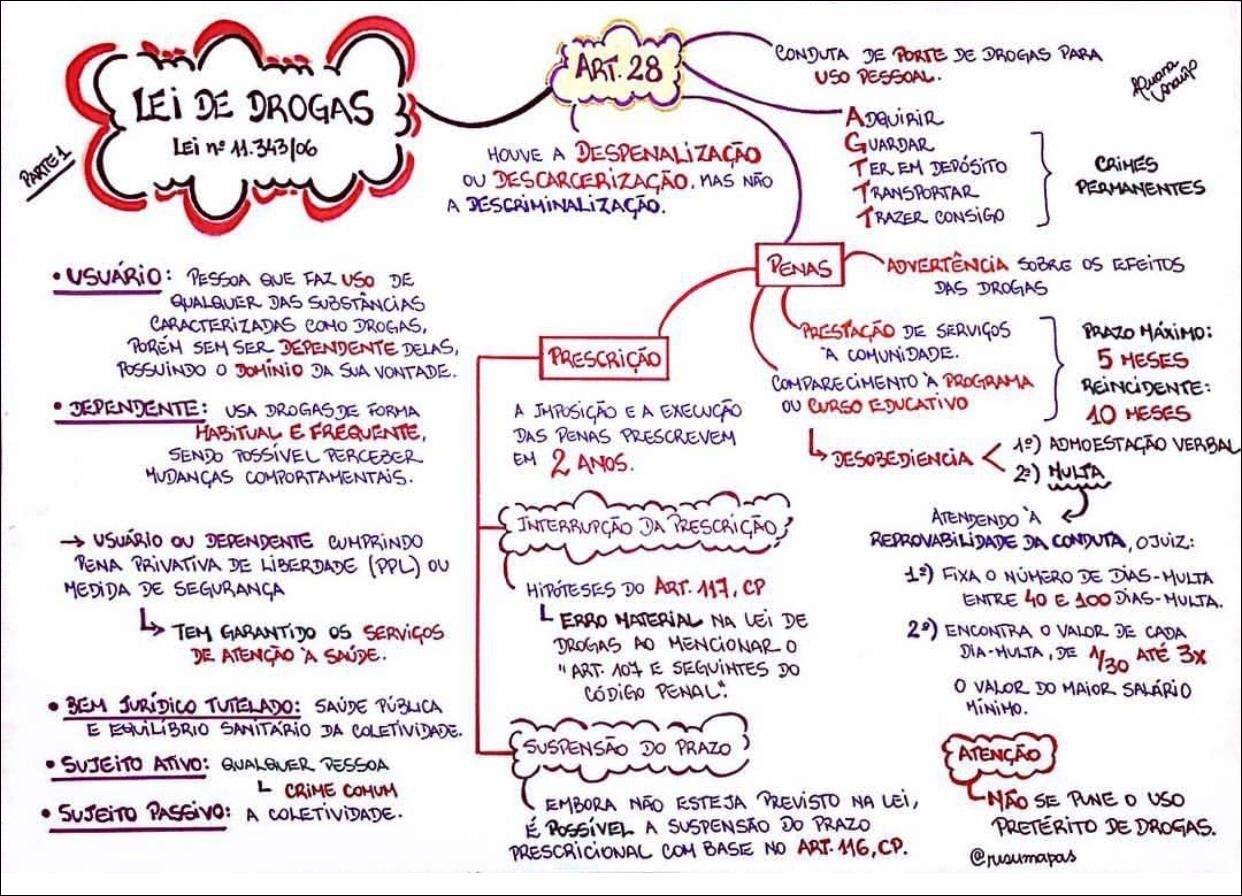 LEI DE DROGAS
LEI nº 11.343/06
PARTE 1
ART. 28
CONDUTA DE PORTE DE DROGAS PARA
USO PESSOAL.
HOUVE A DESPENALIZAÇÃO
OU DESCARCERIZAÇÃO, MAS NÃO
A DESCRIMINALIZAÇÃO.
ADQUIRIR
GUARDAR
TER EM DEPÓSITO
TRANSPORTAR
TRAZER CONSIGO
CRIMES
PERMANENTES
• USUÁRIO: PESSOA QUE FAZ USO DE
QUALQUER DAS SUBSTÂNCIAS
CARACTERIZADAS COMO DROGAS,
PORÉM SEM SER DEPENDENTE DELAS,
POSSUINDO O DOMÍNIO DA SUA VONTADE.
• DEPENDENTE: USA DROGAS DE FORMA
HABITUAL E FREQUENTE,
SENDO POSSÍVEL PERCEBER
MUDANÇAS COMPORTAMENTAIS.
→ USUÁRIO OU DEPENDENTE CUMPRINDO
PENA PRIVATIVA DE LIBERDADE (PPL) OU
MEDIDA DE SEGURANÇA
↳ TEM GARANTIDO OS SERVIÇOS
DE ATENÇÃO À SAÚDE.
• BEM JURÍDICO TUTELADO: SAÚDE PÚBLICA
E EQUILÍBRIO SANITÁRIO DA COLETIVIDADE.
• SUJEITO ATIVO: QUALQUER PESSOA
CRIME COMUM
• SUJEITO PASSIVO: A COLETIVIDADE.
PENAS
ADVERTÊNCIA SOBRE OS EFEITOS
DAS DROGAS
PRESTAÇÃO DE SERVIÇOS
À COMUNIDADE.
COMPARECIMENTO À PROGRAMA
OU CURSO EDUCATIVO
PRAZO MÁXIMO:
5 MESES
REINCIDENTE:
10 MESES
↳ DESOBEDIENCIA <
1º) ADMOESTAÇÃO VERBAL
2º) MULTA
ATENDENDO À
REPROVABILIDADE DA CONDUTA, O JUIZ:
1º) FIXA O NÚMERO DE DIAS-MULTA
ENTRE 40 E 100 DIAS-MULTA.
2º) ENCONTRA O VALOR DE CADA
DIA-MULTA, DE 1/30 ATÉ 3X
O VALOR DO MAIOR SALÁRIO
MÍNIMO.
PRESCRIÇÃO
A IMPOSIÇÃO E A EXECUÇÃO
DAS PENAS PRESCREVEM
EM 2 ANOS.
INTERRUPÇÃO DA PRESCRIÇÃO
HIPÓTESES DO ART. 117, CP
ERRO MATERIAL NA LEI DE
DROGAS AO MENCIONAR O
"ART. 107 E SEGUINTES DO
CÓDIGO PENAL".
SUSPENSÃO DO PRAZO
EMBORA NÃO ESTEJA PREVISTO NA LEI,
É POSSÍVEL A SUSPENSÃO DO PRAZO
PRESCRICIONAL COM BASE NO ART. 116, CP.
ATENÇÃO
NÃO SE PUNE O USO
PRETÉRITO DE DROGAS.